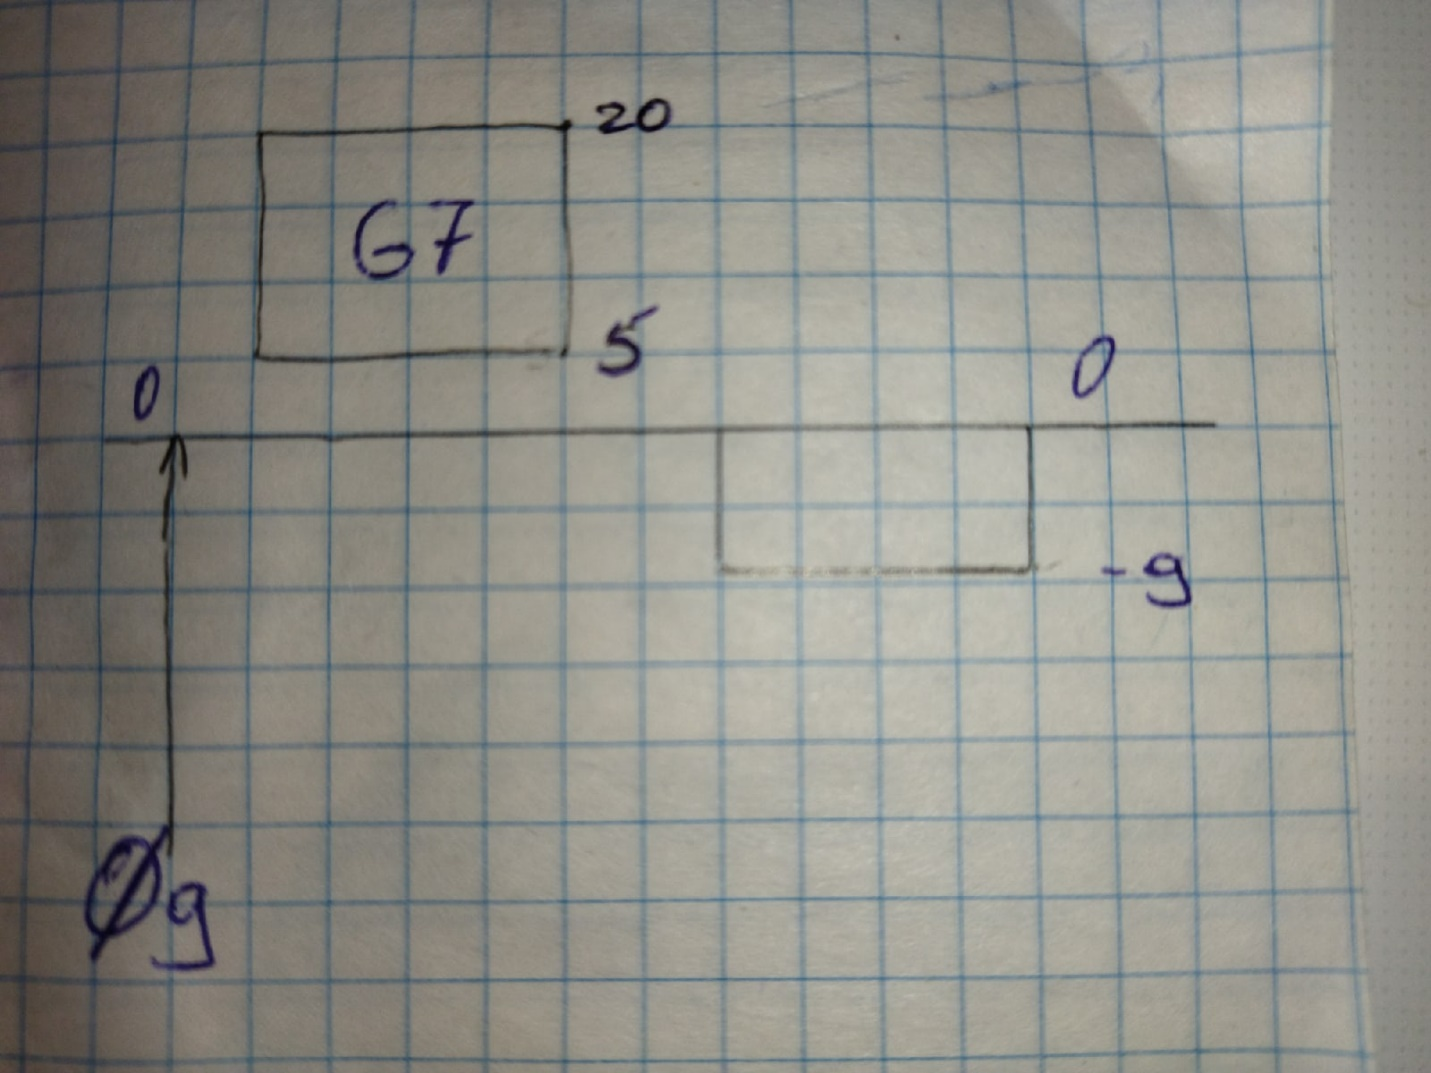 20
G7
5
0
0
-g
Øg